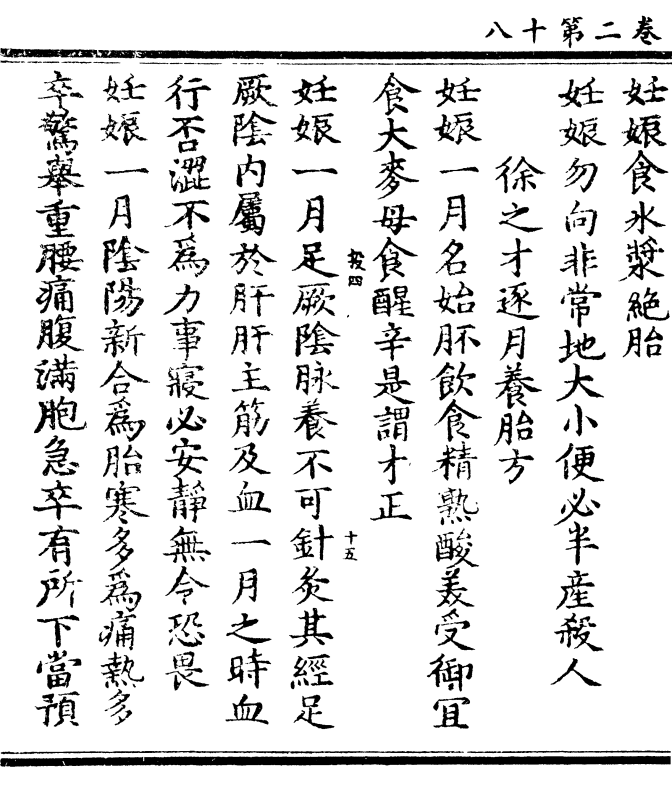 卷二第十八
妊娠食氷漿絕胎
妊娠勿向非常地大小便必半產殺人
徐之才逐月養胎方
妊娠一月名始胚飲食精熟酸美受御宜
食大麥母食醒辛是謂才正
投四
十五
妊娠一月足厥陰脉養不可針灸其經足
厥陰內屬於肝肝主筋及血一月之時血
行否澀不爲力事寢必安靜無令恐畏
妊娠一月陰陽新合爲胎寒多爲痛熱多
卒驚舉重腰痛腹滿胞急卒有所下當預